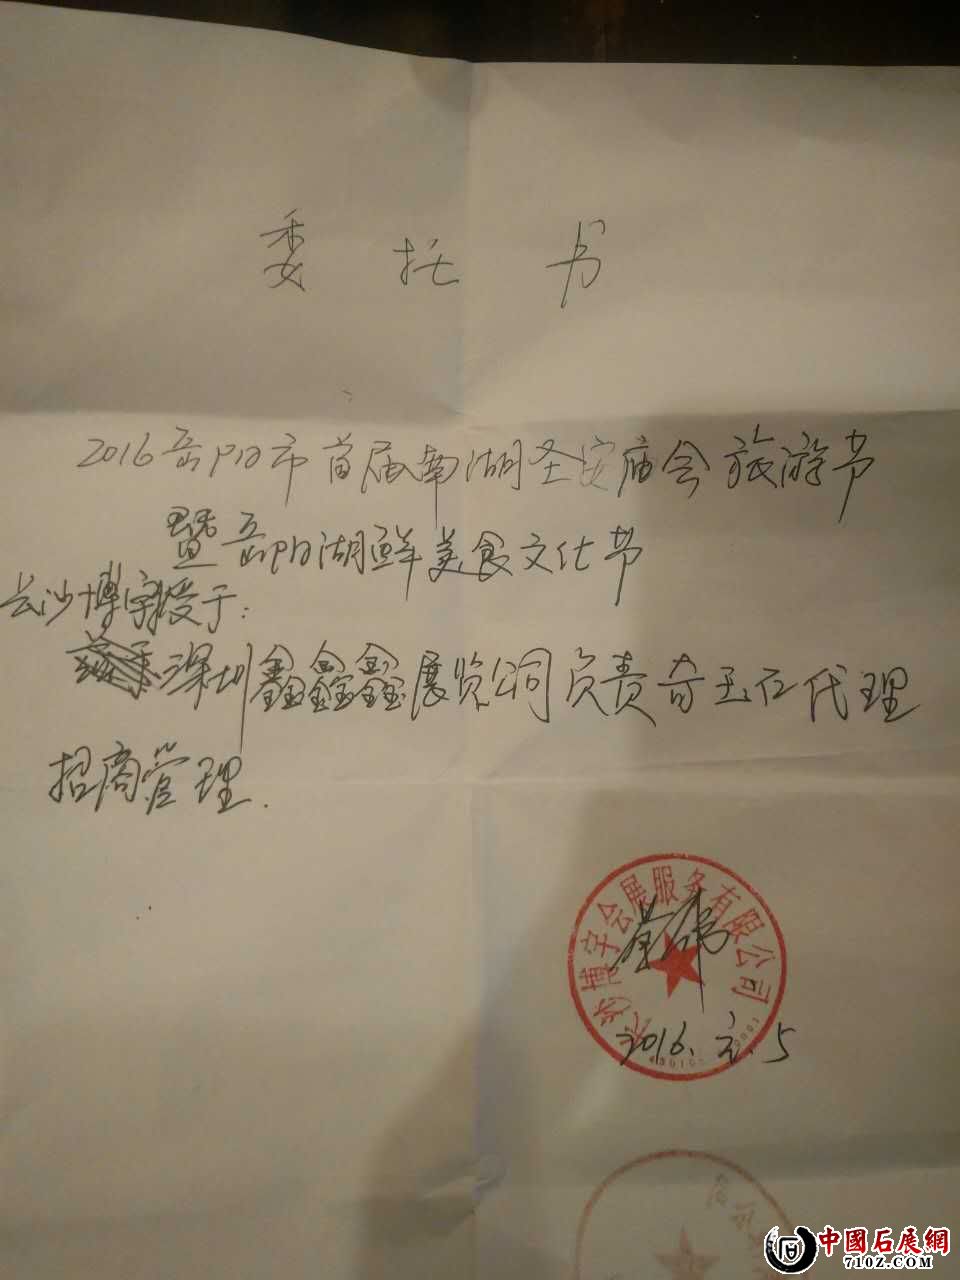 委托书
2016岳阳市首届南湖圣安庙会旅游节
暨岳阳湖鲜美食文化节
长沙博宇授于:
深圳鑫鑫鑫展览公司负责奇玉石代理
招商管理.
长沙博宇会展服务有限公司
2016. 5
中國石展網
710Z.COM